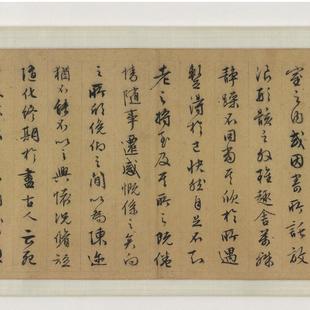 室之内或因寄所託放
浪形骸之外雖趣舍萬殊
静躁不同當其欣於所遇
暫得於己快然自足不知
老之將至及其所之既惓
情隨事遷感慨係之矣向
之所欣俛仰之間以為陳迹
猶不能不以之興懷況脩短
隨化終期於盡古人云死